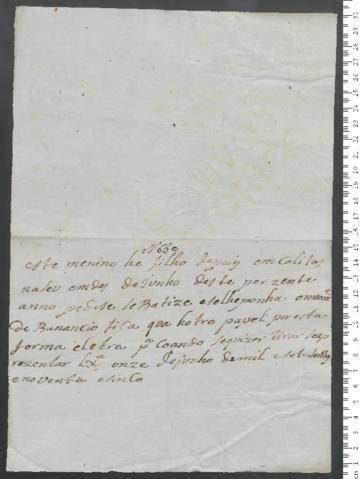 Nº 609
este menino he filho de pays emColitos
naseu em des de Junho deste perzente
anno pedese se Batize eselheponha onome
de Bunancio fica qua hotro papel por esta
forma eletra pª Coando sequizer tirar se ap
rezentar Lxª onze de junho de mil e setesentos
enoventa esinCo